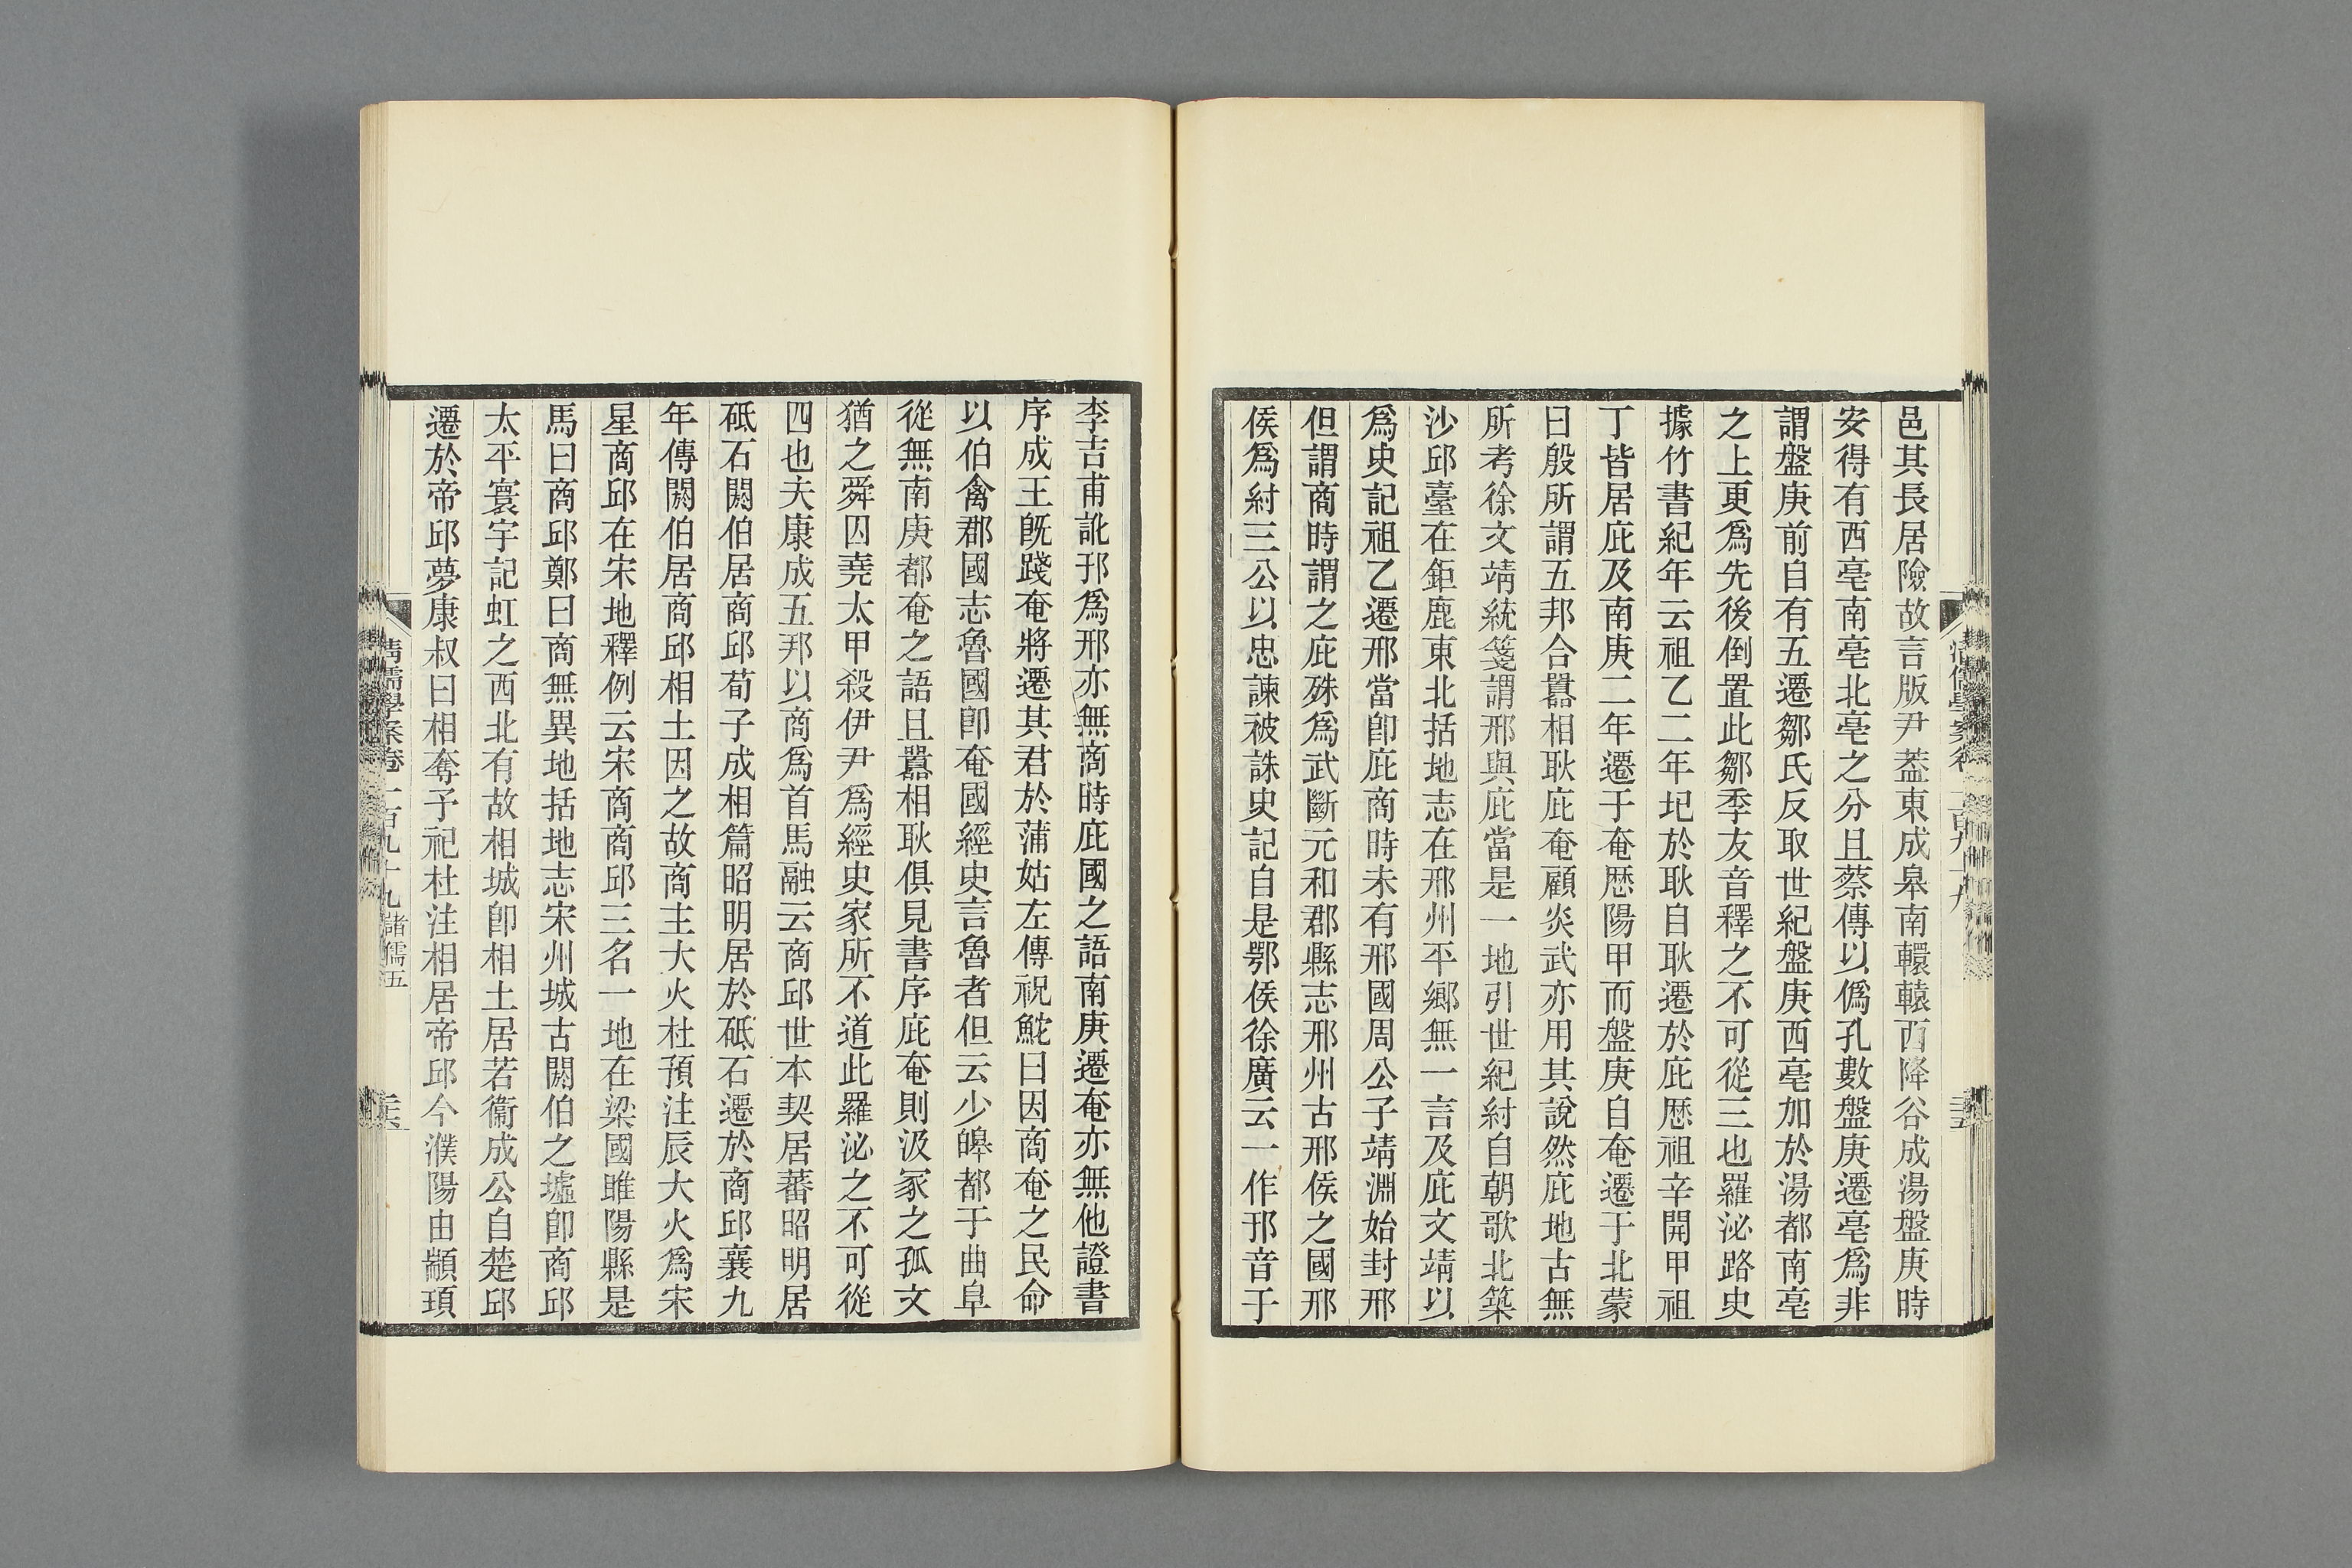 邑其長居險故言版尹葢東成皋南轘轅西降谷成湯盤庚時
安得有西亳南亳北亳之分且蔡傳以僞孔數盤庚遷亳爲非
謂盤庚前自有五遷鄒氏反取世紀盤庚西亳加於湯都南亳
之上更爲先後倒置此鄒季友音釋之不可從三也羅泌路史
據竹書紀年云祖乙二年圮於耿自耿遷於庇歷祖辛開甲祖
丁皆居庇及南庚二年遷于奄歷陽甲而盤庚自奄遷于北蒙
曰殷所謂五邦合囂相耿庇奄顧炎武亦用其說然庇地古無
所考徐文靖統箋謂邢與庇當是一地引世紀紂自朝歌北築
沙邱臺在鉅鹿東北括地志在邢州平鄉無一言及庇文靖以
爲史記祖乙遷邢當卽庇商時未有邢國周公子靖淵始封邢
但謂商時謂之庇殊爲武斷元和郡縣志邢州古邢侯之國邢
侯爲紂三公以忠諫被誅史記自是鄂侯徐廣云一作邘音于
李吉甫訛邘爲邢亦無商時庇國之語南庚遷奄亦無他證書
序成王旣踐奄將遷其君於蒲姑左傳祝鮀曰因商奄之民命
以伯禽郡國志魯國卽奄國經史言魯者但云少皞都于曲阜
從無南庚都奄之語且囂相耿俱見書序庇奄則汲冢之孤文
猶之舜囚堯太甲殺伊尹爲經史家所不道此羅泌之不可從
四也夫康成五邦以商爲首馬融云商邱世本契居蕃昭明居
砥石閼伯居商邱荀子成相篇昭明居於砥石遷於商邱襄九
年傳閼伯居商邱相土因之故商主大火杜預注辰大火爲宋
星商邱在宋地釋例云宋商商邱三名一地在梁國睢陽縣是
馬曰商邱鄭曰商無異地括地志宋州城古閼伯之墟卽商邱
太平寰宇記虹之西北有故相城卽相土居若衞成公自楚邱
遷於帝邱夢康叔曰相奪予祀杜注相居帝邱今濮陽由顓頊
清儒學案卷一百九十九 諸儒五